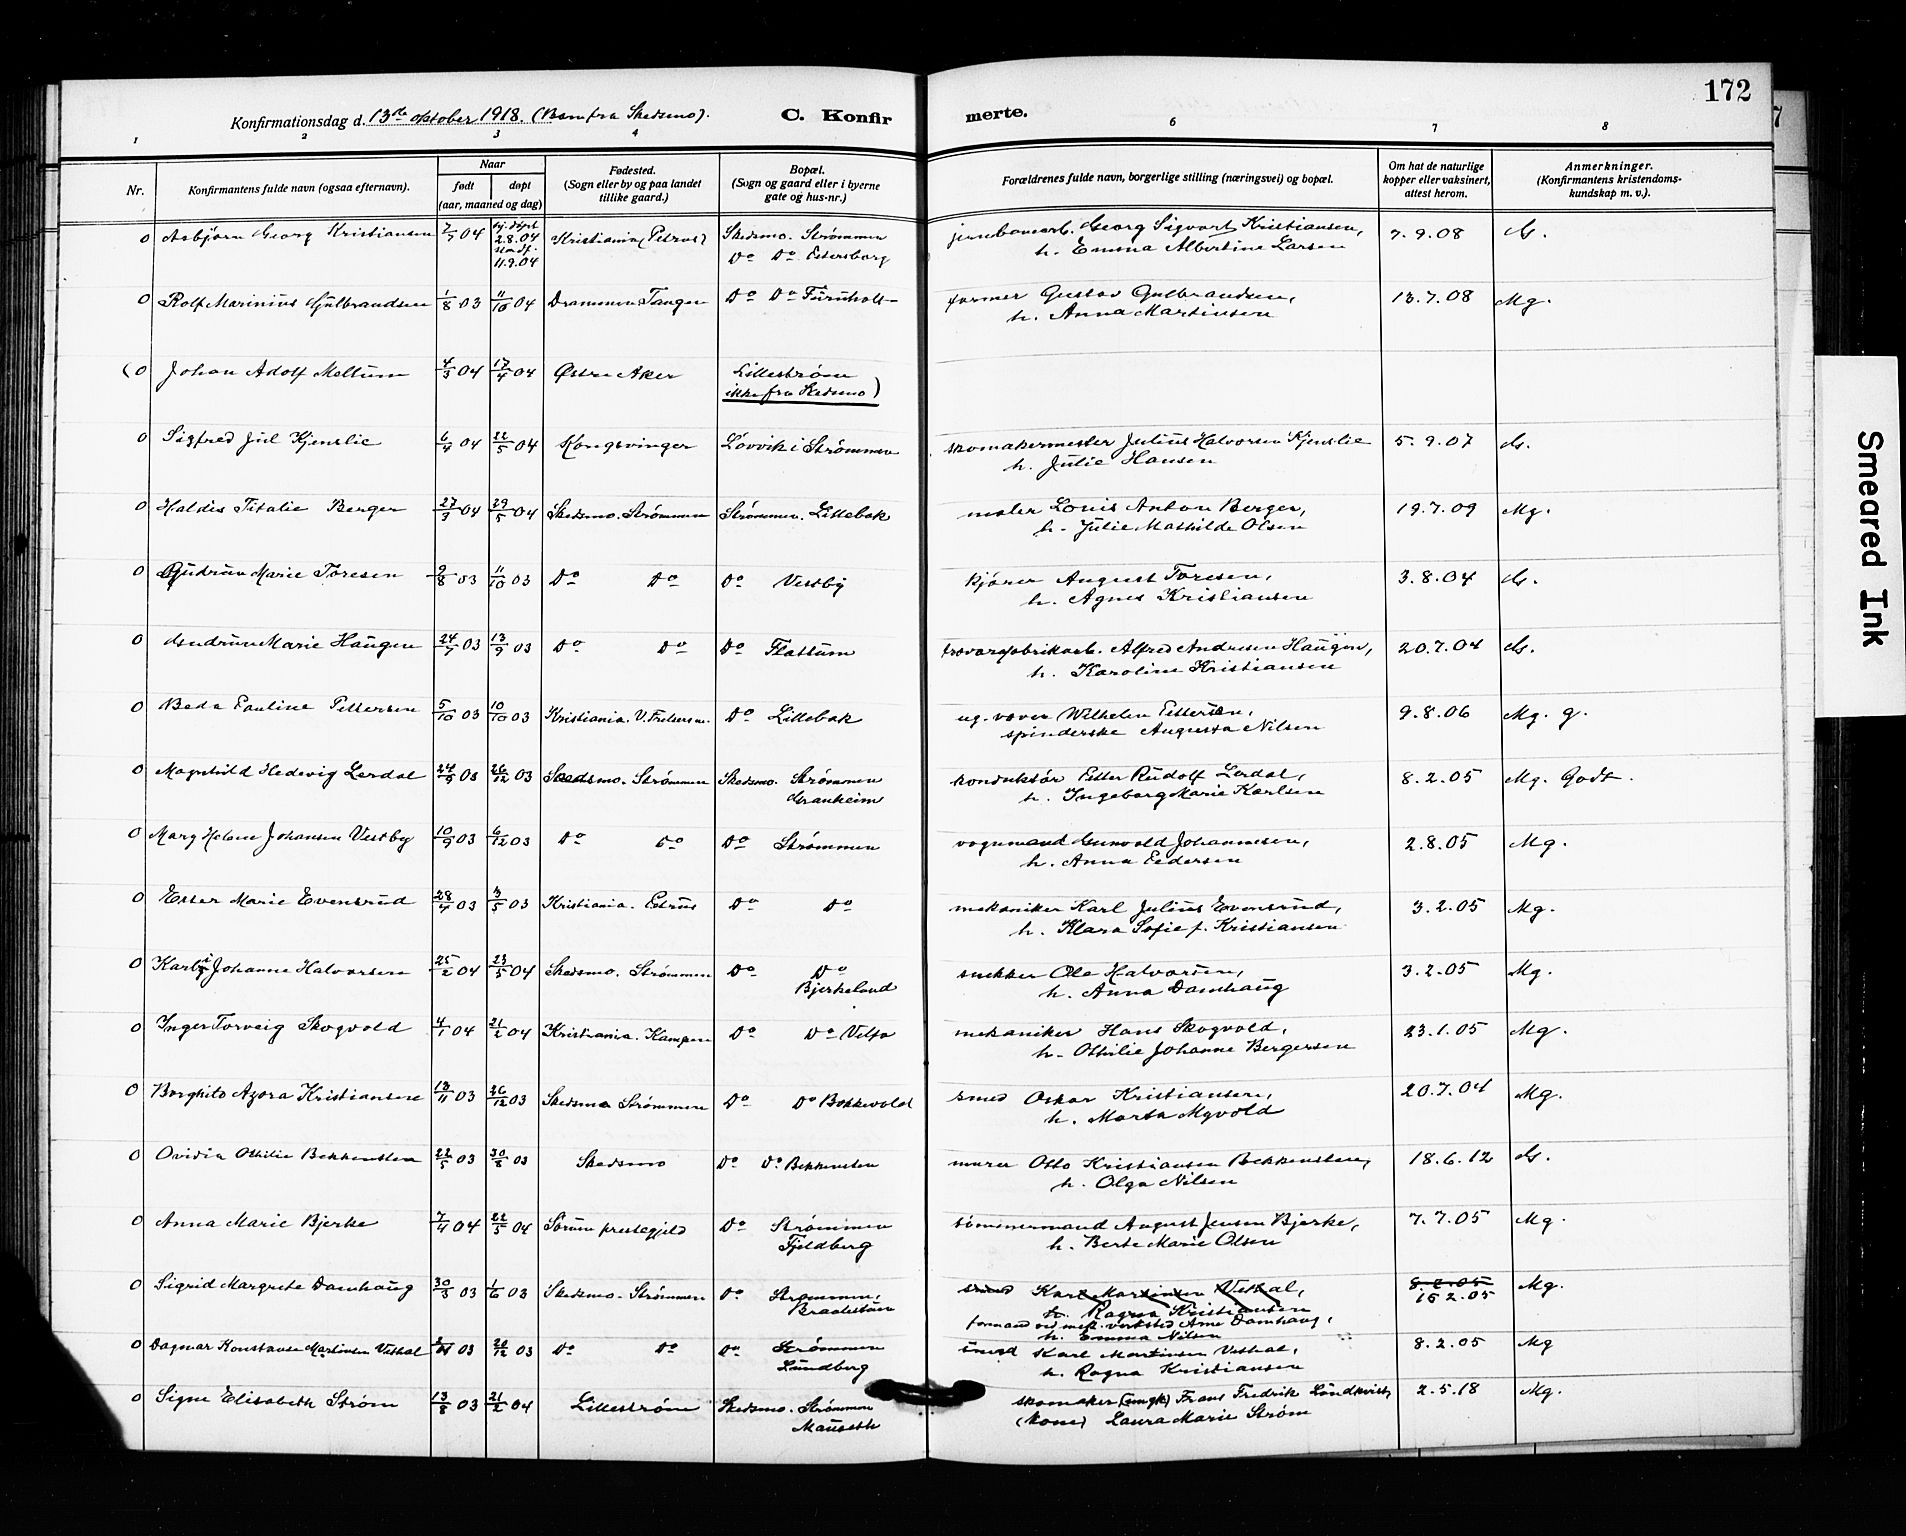 172
Konfirmationsdag d. 13de oktober 1918. (Barn fra Skedsmo). C. Konfirmerte.
1 2 3 4 6 7 8
Nr. Konfirmantens fulde navn (ogsaa efternavn). Naar født døpt (aar, maaned og dag) Fødested. (Sogn eller by og paa landet tillike gaard.) Bopæl. (Sogn og gaard eller i byerne gate og hus-nr.) Forældrenes fulde navn, borgerlige stilling (næringsvei) og bopæl. Om hat de naturlige kopper eller vaksinert, attest herom. Anmerkninger. (Konfirmantens kristendoms-kundskap m. v.).
0 Asbjørn Georg Kristiansen 7/7 04 hj.døpt 2.8.04 stadf. 11.9.04 Kristiania (Petrus) Skedsmo. Strømmen jernbanearb. Georg Sigvart Kristiansen, 7.9.08 G.
Do Do Petersborg h. Emma Albertine Larsen
0 Rolf Marinius Gulbrandsen 1/8 03 11/10 04 Drammen Tangen Do Do Furuholt former Gustav Gulbrandsen, 13.7.08 Mg.
h. Anna Martinsen
(0 Johan Adolf Mellum 4/3 04 17/4 04 Østre Aker Lillestrøm
ikke fra Skedsmo)
0 Sigfred Jul Kjenslie 6/4 04 22/5 04 Kongsvinger Løvvik i Strømmen skomakermester Julius Halvorsen Kjenslie 5.9.07 G.
h. Julie Hansen
0 Haldis Titalie Berger 27/3 04 29/5 04 Skedsmo. Strømmen Strømmen. Lillebak maler Louis Anton Berger, 19.7.09 Mg.
h. Julie Mathilde Olsen
0 Gudrun Marie Toresen 9/8 03 11/10 03 Do Do Do Vestby kjører August Toresen, 3.8.04 G.
h. Agnes Kristiansen
0 Gudrun Marie Haugen 24/7 03 13/9 03 Do Do Do Flattum trævarefabrikarb. Alfred Andresen Haugen, 20.7.04 G.
h. Karoline Kristiansen
0 Beda Pauline Pettersen 5/10 03 10/10 03 Kristiania. V. Frelsers m. Do Lillebak ug. væver Wilhelm Pettersen, 9.8.06 Mg. g.
spinderske Augusta Nilsen
0 Magnhild Hedevig Lerdal 24/9 03 26/12 03 Skedsmo. Strømmen Skedsmo. Strømmen konduktør Petter Rudolf Lerdal, 8.2.05 Mg. Godt.
Granheim h. Ingeborg Marie Karlsen
0 Mary Helene Johansen Vestby 10/9 03 6/12 03 Do Do Do Strømmen vognmand Gunvald Johannesen, 2.8.05 Mg.
h. Anna Pedersen
0 Ester Marie Evensrud 28/4 03 3/5 03 Kristiania. Petrus Do Do mekaniker Karl Julius Evensrud, 3.2.05 Mg.
h. Klara Sofie f. Kristiansen
0 Karly Johanne Halvorsen 25/2 04 23/5 04 Skedsmo. Strømmen Do Do snekker Ole Halvorsen, 3.2.05 Mg.
Bjerkelund h. Anna Damhaug
0 Inger Torveig Skogvold 4/1 04 21/2 04 Kristiania. Kampen Do Do Velta mekaniker Hans Skogvold, 23.1.05 Mg.
h. Othilie Johanne Bergersen
0 Borghild Azora Kristiansen 13/11 03 26/12 03 Skedsmo Strømmen Do Do Bakkevold smed Oskar Kristiansen, 20.7.04 Mg.
h. Marta Myvold
0 Ovidia Othilie Bekkensten 22/5 03 30/8 03 Skedsmo Do Do Bekkensten murer Otto Kristiansen Bekkensten, 18.6.12 G.
h. Olga Nilsen
0 Anna Marie Bjerke 7/4 04 22/5 04 Sørum prestegjeld Do Strømmen tømmermand August Jensen Bjerke, 7.7.05 Mg.
Fjeldberg h. Berte Marie Olsen
0 Sigrid Margrete Damhaug 30/3 03 1/6 03 Skedsmo. Strømmen Do Strømmen, smed Karl Martinsen Vestal, 8.2.05 Mg.
Braatestuen h. Ragna Kristiansen 15 2.05
formand ved mek. verksted Arne Damhaug,
h. Emma Nilsen
0 Dagmar Konstanse Martinsen Vestal 03 20/12 03 Do Do Do Strømmen smed Karl Martinsen Vestal, 8.2.05 Mg
Lundberg h. Ragna Kristiansen
0 Signe Elisabeth Strøm 13/8 03 21/2 04 Lillestrøm Skedsmo. Strømmen skomaker (ungk) Frans Fredrik Lundkvist, 2.5.18 Mg.
Mauseth (kone) Laura Marie Strøm
Smeared Ink
7